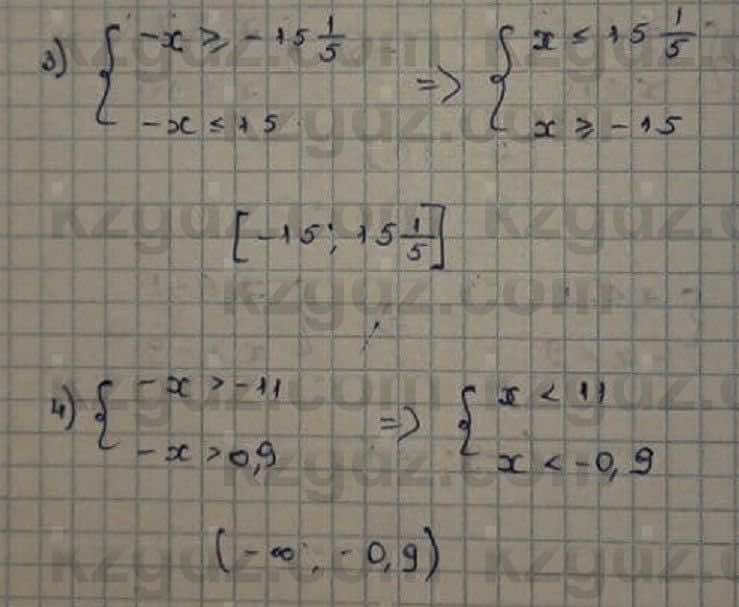 3) { -x ≥ -15 1/5 => { x ≤ 15 1/5
-x ≤ 15 x ≥ -15
[-15; 15 1/5]
4) { -x > -11 => { x < 11
-x > 0,9 x < -0,9
(-∞; -0,9)
kzgdz.com